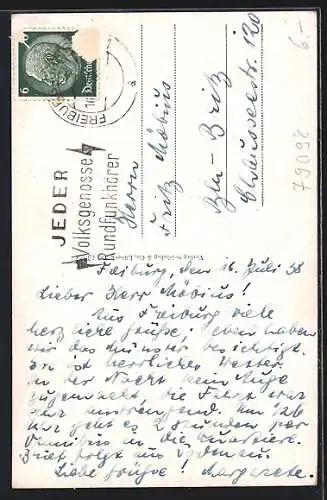 6
Deutsches
FREIBURG
JEDER
Volksgenosse
Rundfunkhörer
Herrn
Fritz Möbius
Bln-Britz
Chausseestr. 120
79098
6,-
Freiburg, den 16. Juli 38
Lieber Herr Möbius!
Aus Freiburg viele
herzliche Grüße: eben haben
wir das Münster besichtigt.
Es ist herrliches Wetter
In der Nacht kein Auge
zugemacht, die Fahrt war
sehr anstrengend. Um
Uhr geht es 2 Stunden per
Omnibus in die Quartiere.
Brief folgt aus
Liebe Grüße! Margarete.